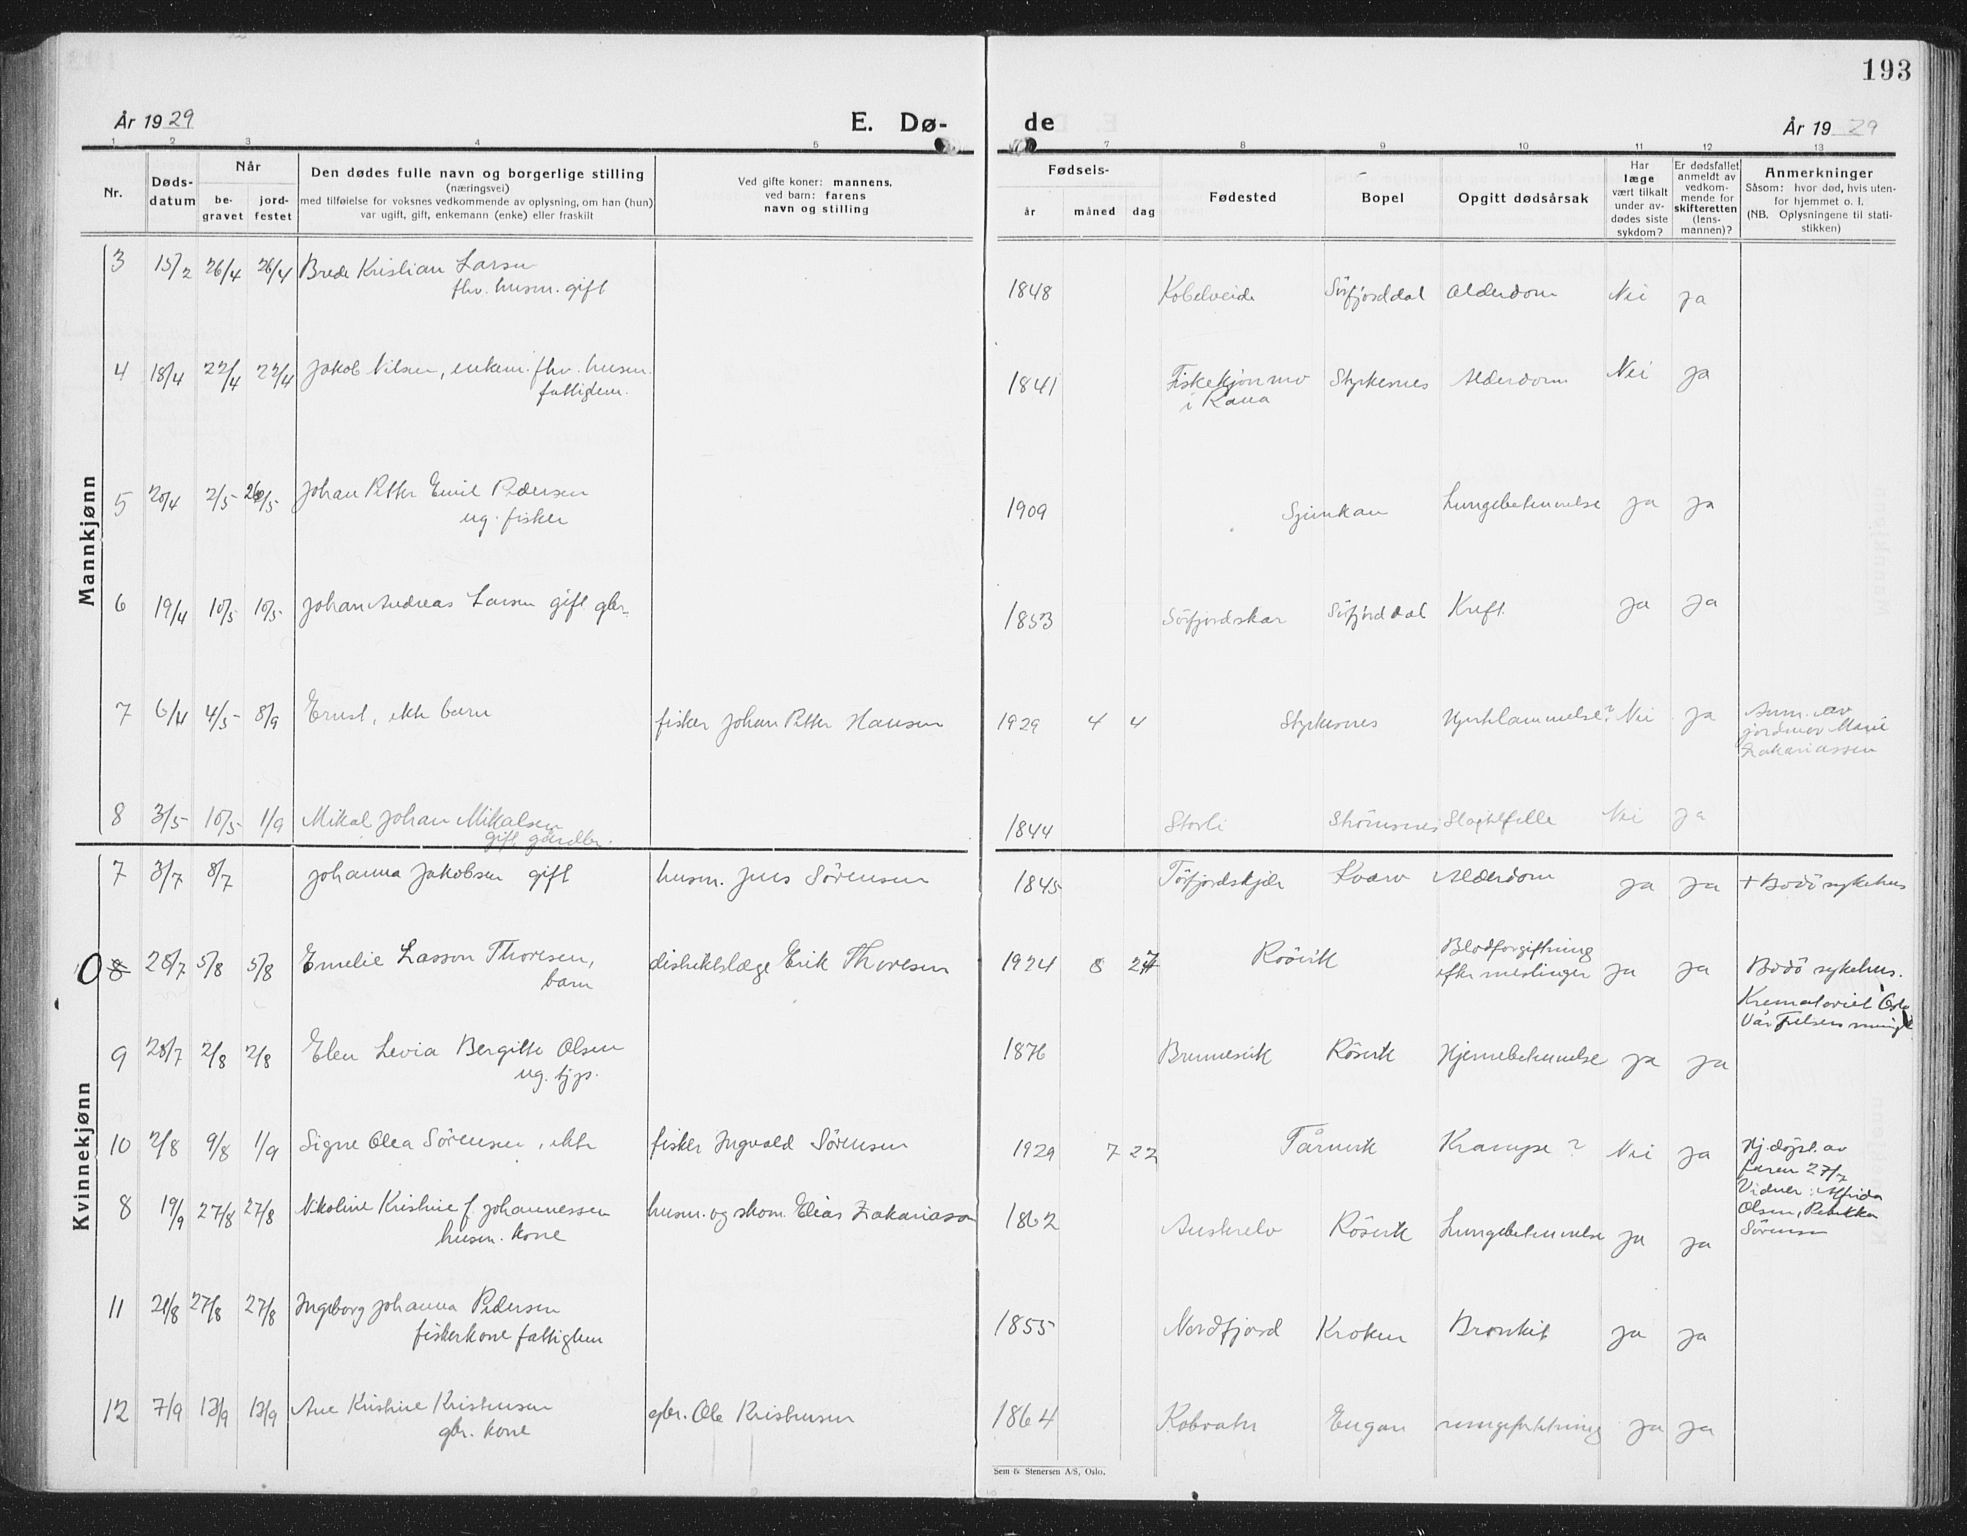 193
År 1929 E. Dø- de År 1929
1 2 3 4 5 7 8 9 10 11 12 13
Nr.
Døds-
datum
Når
be-
gravet
jord-
festet
Den dødes fulle navn og borgerlige stilling
(næringsvei)
med tilføielse for voksnes vedkommende av oplysning, om han (hun)
var ugift, gift, enkemann (enke) eller fraskilt
Ved gifte koner: mannens,
ved barn: farens
navn og stilling
Fødsels-
år måned dag
Fødested
Bopel
Opgitt dødsårsak
Har
læge
vært tilkalt
under av-
dødes siste
sykdom?
Er dødsfallet
anmeldt av
vedkom-
mende for
skifteretten
(lens-
mannen)?
Anmerkninger
Såsom: hvor død, hvis uten-
for hjemmet o. l.
(NB. Oplysningene til stati-
stikken)
Mannkjønn
3 15/2 26/4 26/4 Brede Kristian Larsen 1848 Kobelveide Sörfjorddal Alderdom Nei ja
fhv. husm. gift
4 18/4 22/4 22/4 Jakob Nilsen, enkem. fhv. husm. 1841 Fiskekjönmo Styrkesnes Alderdom Nei ja
fattiglem. i Rana
5 20/4 2/5 Johan Petter Emil Pedersen 1909 Sjunkan Lungebetennelse ja ja
ug. fisker
6 19/4 10/5 10/5 Johan Andreas Larsen gift gbr. 1853 Sörfjordskar Sörfjorddal Kreft ja ja
7 6/4 4/5 8/9 Ernst, ekte barn fisker Johan Petter Hansen 1929 4 4 Styrkesnes Nei ja Anm. av
jordmor Marie
Zakariassen
8 3/5 10/5 1/9 Mikal Johan Mikalsen 1844 Storli Strömsnes Slagtilfelle Nei ja
gift gårdbr.
Kvinnekjønn
7 3/7 8/7 Johanna Jakobsen gift husm. Jens Sörensen 1845 Kvarv Alderdom ja ja + Bodö sykehus
0 8 28/7 5/8 5/8 Emelie Lasson Thoresen, distriktslæge Erik Thoresen 1924 8 27 Röövik Blodforgiftning
barn efter meslinger ja ja Bodö sykehus.
Krematoriet Oslo
Vår Frelsers
9 28/7 2/8 2/8 Elen Levia Bergitte Olsen 1876 Brunnesvik Rösvik Hjernebetennelse ja ja
ug. tjp.
10 2/8 9/8 1/9 Signe Olea Sörensen, ekte fisker Ingvald Sörensen 1929 7 22 Tårnvik Krampe? Nei ja Hj.döpt av
faren 27/7
Vidner: Alfrida
Olsen, Rebekka
Sörensen
8 19/9 27/8 27/8 Nikoline Kristine f. Johannessen husm. og skom. Elias Zakariason 1862 Austerelv Rösvik Lungebetennelse ja ja
husm. kone
11 21/8 27/8 27/8 Ingeborg Johanna Pedersen 1855 Nordfjord Kroken Bronkit ja ja
fiskerkone fattiglem
12 7/9 13/9 13/9 Ane Kristine Kristensen gbr. Ole Kristensen 1864 Kobvatn Engan ja ja
gbr. kone
Sem & Stenersen A/S, Oslo.